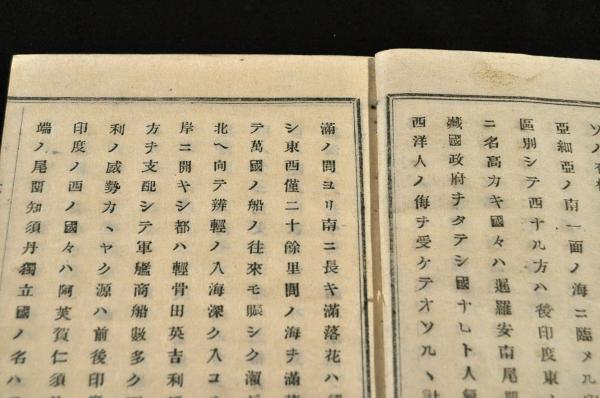 亞細亞ノ南一面ノ海ニ臨メル
區別シテ西ナル方ハ後印度東
ニ名高カキ國々ハ暹羅安南尾
國政府ヲタテシ國ナレト人
西洋人ノ侮ヲ受ケテオソルヽ
滿ノ間ヨリ南ニ長キ滿落花ハ
シ東西僅二十餘里間ノ海ヲ滿
テ萬國ノ船ノ往來モ賑シク
北ヘ向テ辨輕ノ入海深ク入コ
岸ニ開キシ都ハ輕骨田英吉利
方ヲ支配シテ軍艦商船數多ク
利ノ威勢カヽヤク源ハ前後印
印度ノ西ノ國々ハ阿芙賀仁須
端ノ尾留知須丹獨立國ノ名ハ